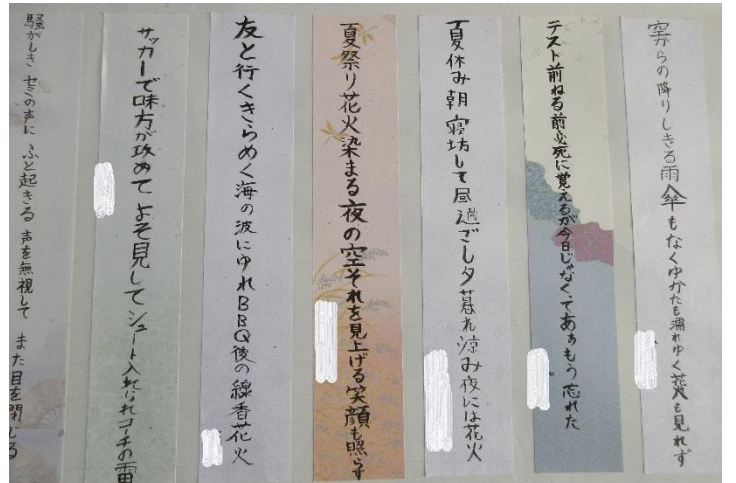 空からの降りしきる雨傘もなくゆかたも濡れゆく花火も見れず
テスト前ねる前必死に覚えるが今日じゃなくてあぁもう忘れた
夏休み朝寝坊して昼過ごし夕暮れ涼み夜には花火
夏祭り花火染まる夜の空それを見上げる笑顔も照らす
友と行くきらめく海の波にゆれBBQ後の線香花火
サッカーで味方が攻めてよそ見してシュート入れられコーチの雷
騒がしきセミの声にふと起きる声を無視してまた目を閉じる